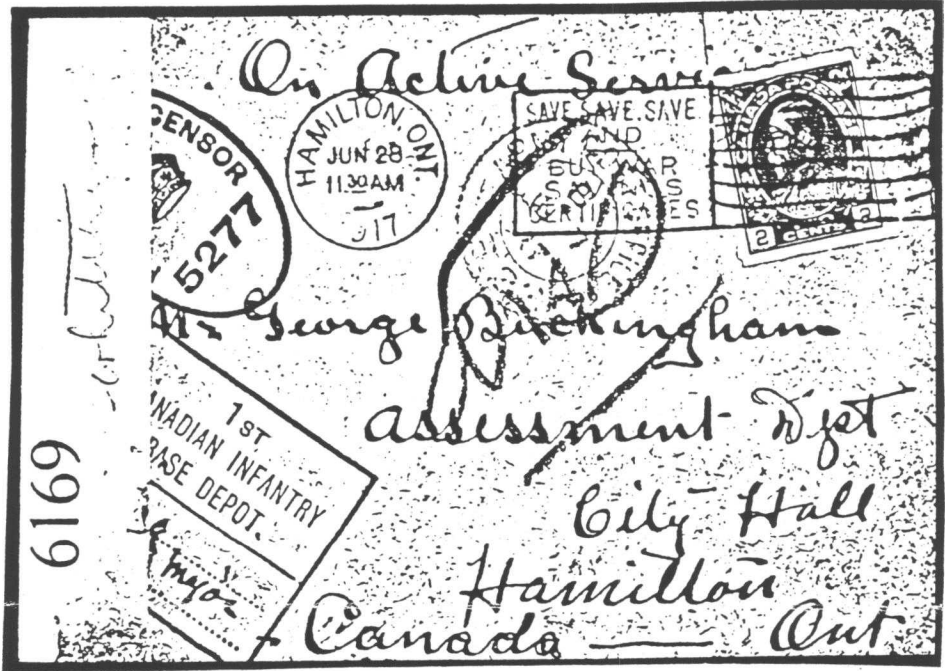 On Active Service
CENSOR
5277
HAMILTON. ONT.
JUN 28
11 30 AM
917
SAVE. SAVE. SAVE
AND
BUY WAR
SAVINGS
CERTIFICATES
2 CENTS 2
Mr George Buckingham
Assessment Dept
City Hall
Hamilton
Canada — Ont
1ST
ANADIAN INFANTRY
BASE DEPOT.
Major
6169